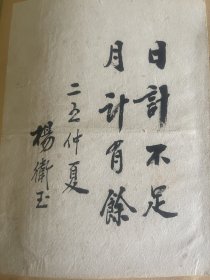 日計不足
月計有餘
二五仲夏
楊衛玉